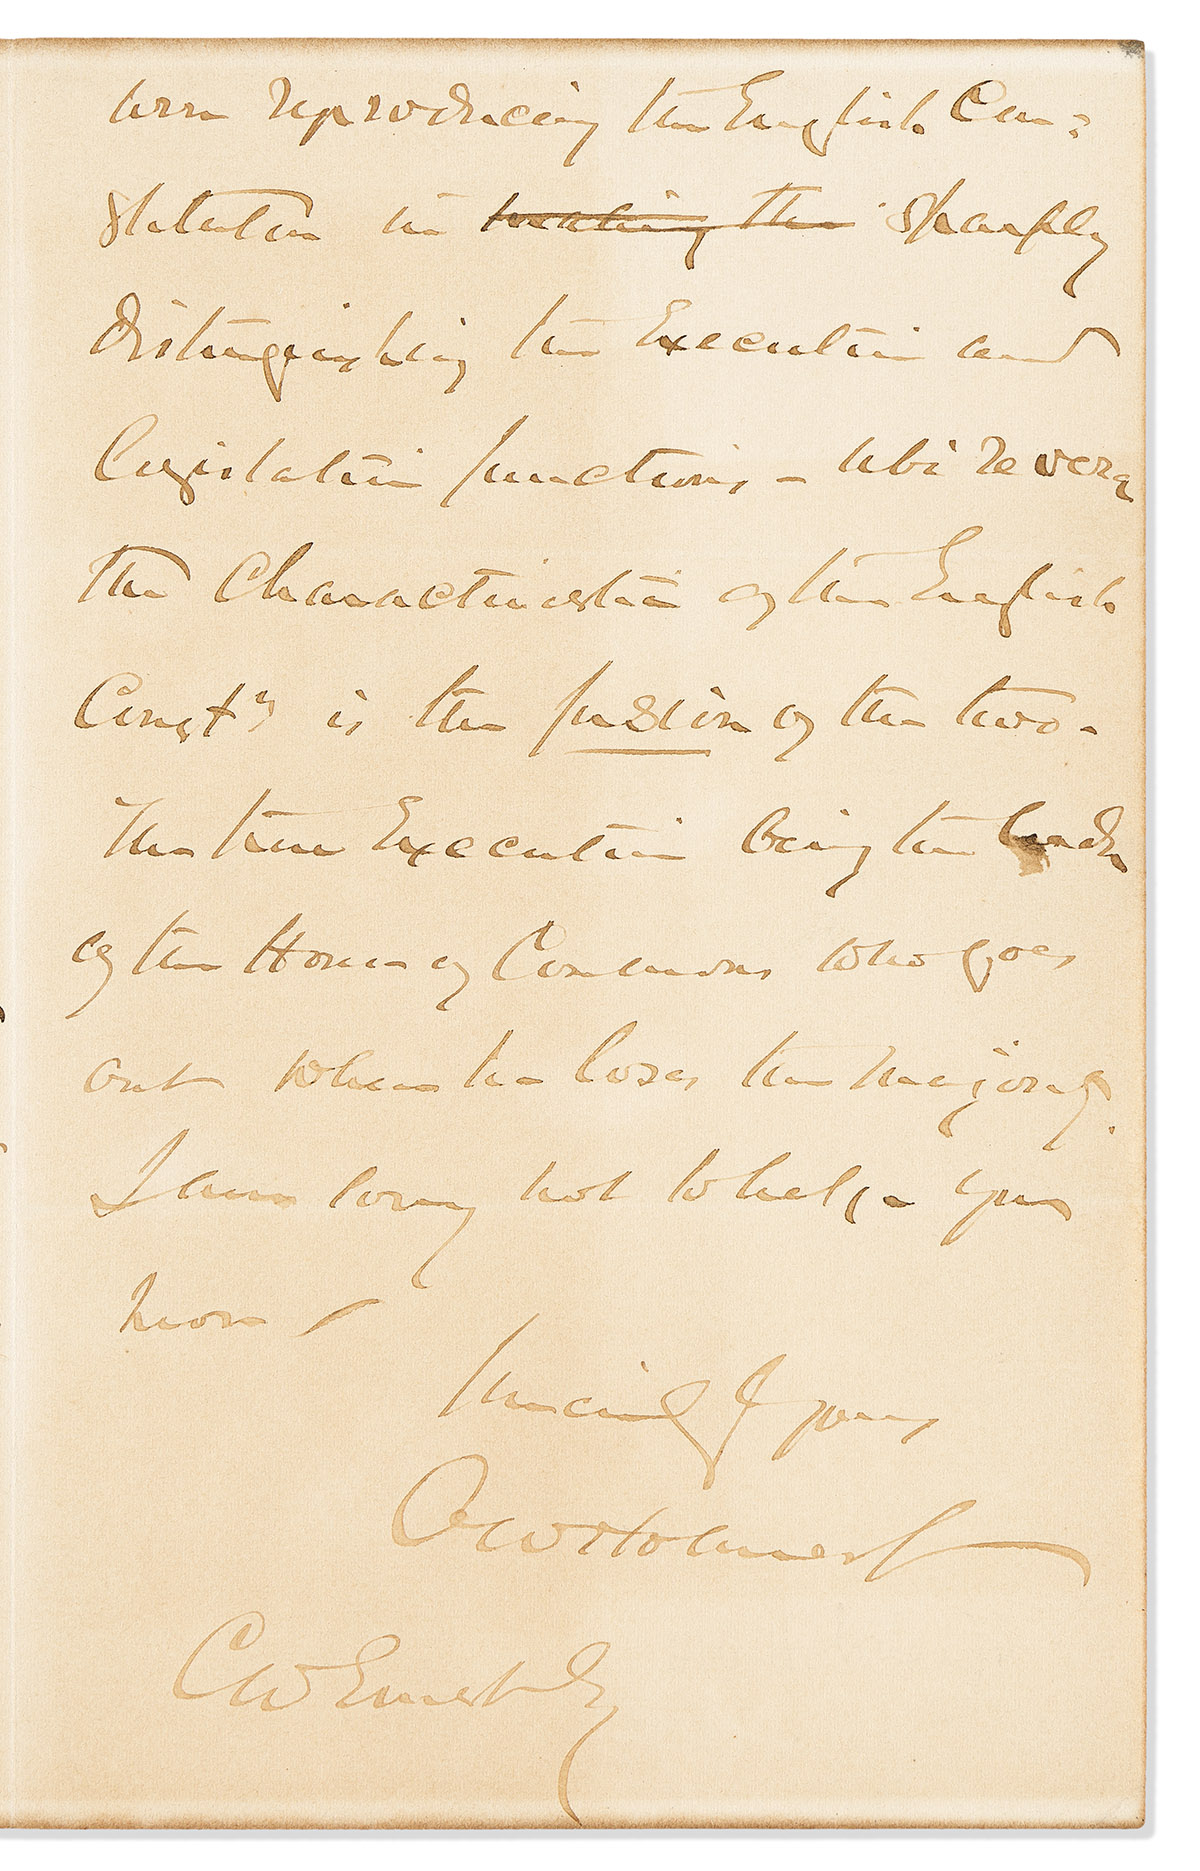 were reproducing the English Con=
stitution in making the sharply
distinguishing the Executive and
Legislative functions -
the Characteristic of the English
Constn is the fusion of the two -
The true Executive being the leader
of the House of Commons who goes
out when he loses the majority.
I am sorry not to help you
more
Sincerely yours
O W Holmes Jr
C W Ernst Esq